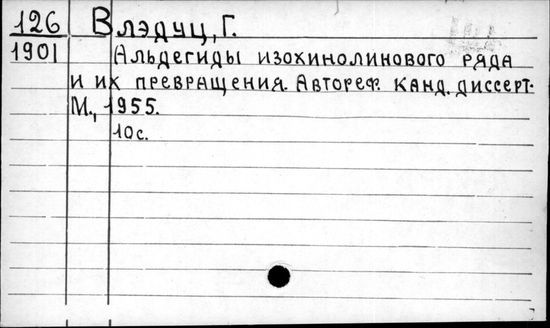 126 Влэдуц, Г.
1901 Альдегиды изохинолинового ряда
и их превращения. Автореф. канд. диссерт.
М., 1955.
10с.